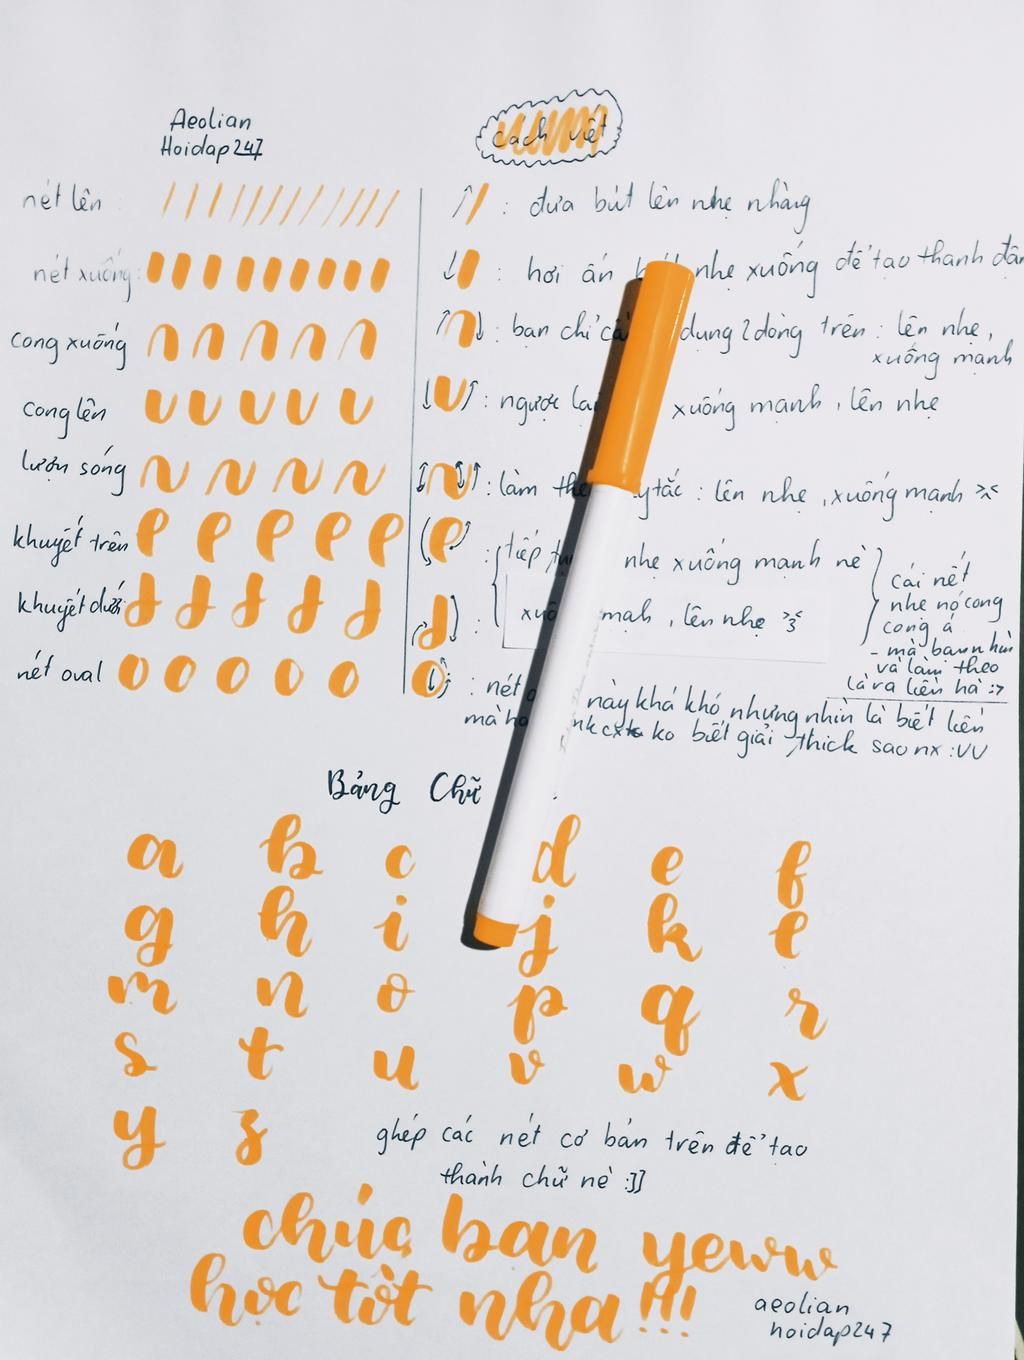 Aeolian
Hoidap247
cách viết
nét lên :
đưa bút lên nhẹ nhàng
nét xuống:
: hơi ấn nhẹ xuống để tạo thanh
cong xuống
: bạn chỉ dụng 2 dòng trên : lên nhẹ,
xuống mạnh
cong lên
: ngược xuống mạnh, lên nhẹ
lượn sóng
: làm tắc : lên nhẹ, xuống mạnh
khuyết trên
: tiếp nhẹ xuống mạnh nè
khuyết dưới
: , lên nhẹ
cái nét
nhẹ nó cong
cong á
- mà bạn nhìn
và làm theo
là ra liền hà :>
nét oval
: nét này khá khó nhưng nhìn là biết liền
ko biết giải thick sao nx :VV
Bảng Chữ
a b c d e f
g h i j k l
m n o p q r
s t u v w x
y z
ghép các nét cơ bản trên để tạo
thành chữ nè :]]
chúc bạn yeww
học tốt nha!!!
aeolian
hoidap247